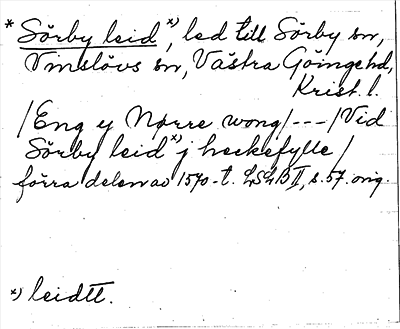 * Sörby leid *), led till Sörby sn,
Vinslövs sn, Västra Göinge hd,
Krist. l.
/Eng ey Nørre wong/---/Vid
Sörby leid *) j heckefylle/
förra delen av 1570-t. LSLB II, s. 57. orig.
*) leidtt.